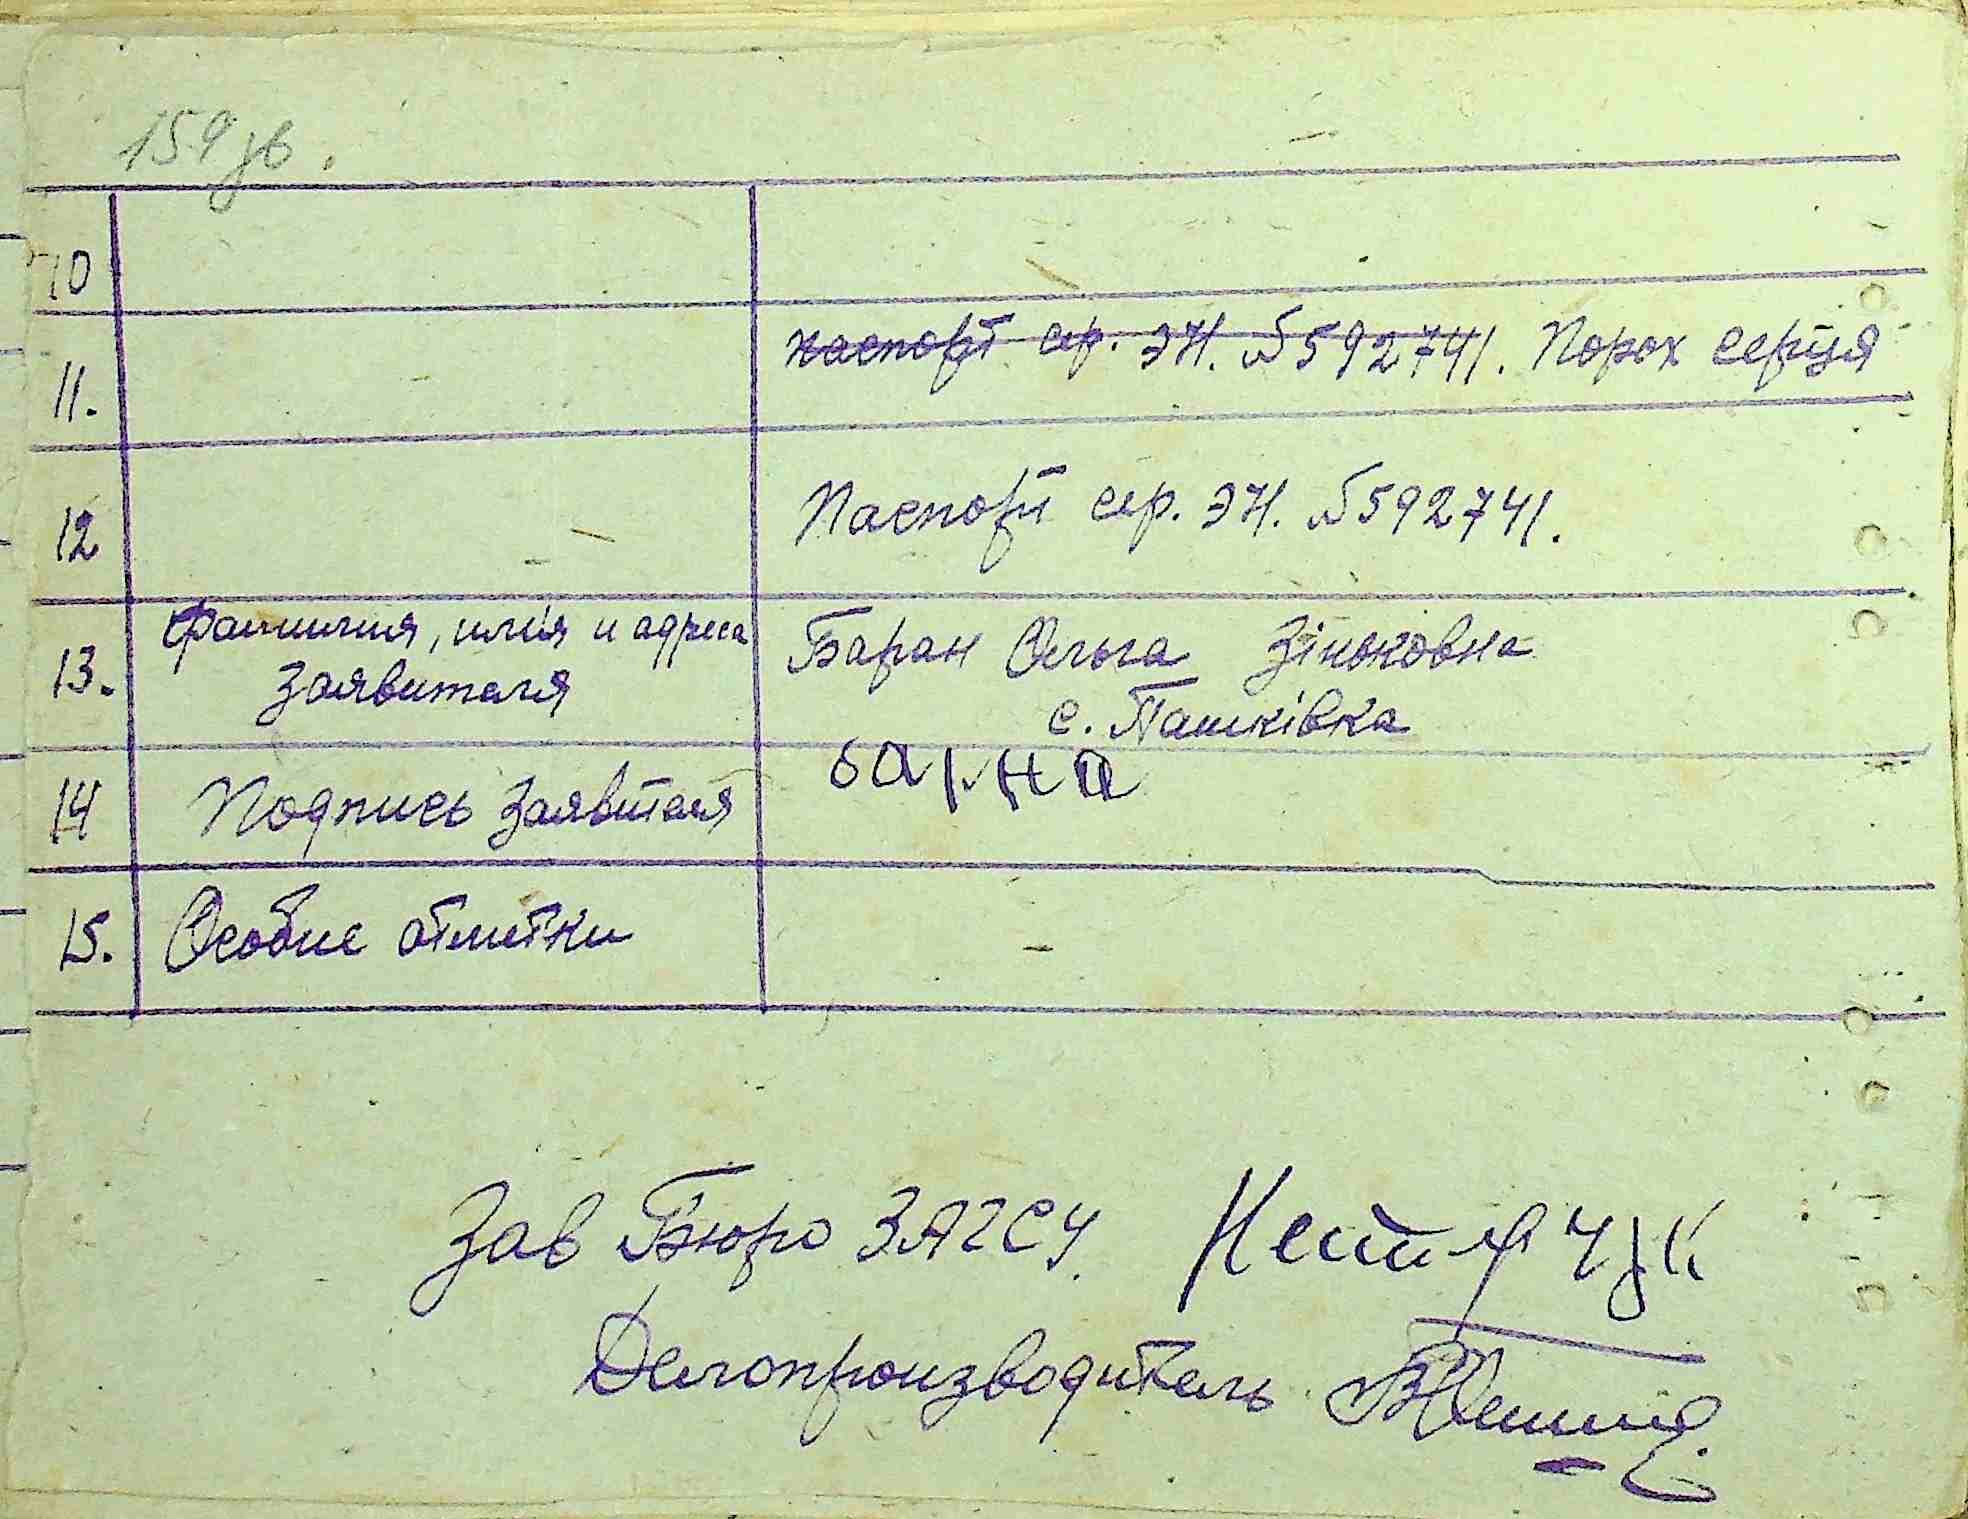 159 зв.
10
11. ~~паспорт сер. ЭН. №592741.~~ Порок серця
12 Паспорт сер. ЭН. №592741.
13. Фамилия, имія и адреса Баран Ольга Зіньковна
заявителя с. Пашківка
14 Подпись заявителя
15. Особые отметки -
Зав Бюро ЗАГСУ. Нестерчук
Делопроизводитель